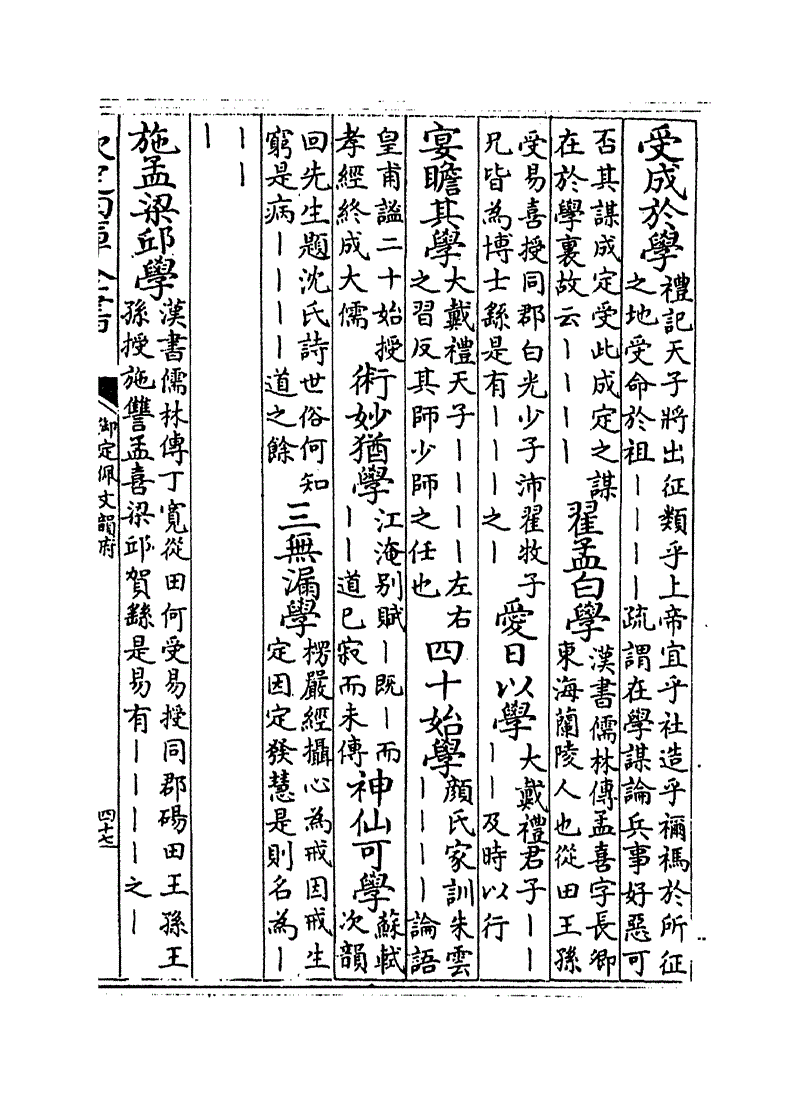 受成於學
禮記天子將出征類乎上帝宜乎社造乎禰禡於所征
之地受命於祖丨丨丨丨疏謂在學謀論兵事好惡可
否其謀成定受此成定之謀
在於學裏故云丨丨丨丨
翟孟白學
漢書儒林傳孟喜字長卿
東海蘭陵人也從田王孫
受易喜授同郡白光少子沛翟牧子
兄皆為博士繇是有丨丨丨之丨
愛日以學
大戴禮君子丨丨
丨丨及時以行
宴瞻其學
大戴禮天子丨丨丨丨左右
之習反其師少師之任也
四十始學
顏氏家訓朱雲
丨丨丨丨論語
皇甫謐二十始授
孝經終成大儒
術妙猶學
江淹別賦丨既丨而
丨丨道已寂而未傳
神仙可學
蘇軾
次韻
回先生題沈氏詩世俗何知
窮是病丨丨丨丨道之餘
三無漏學
楞嚴經攝心為戒因戒生
定因定發慧是則名為丨
丨丨
丨
施孟梁邱學
漢書儒林傳丁寬從田何受易授同郡碭田王孫王
孫授施讐孟喜梁邱賀繇是易有丨丨丨丨之丨
欽定四庫全書
御定佩文韻府
四十七